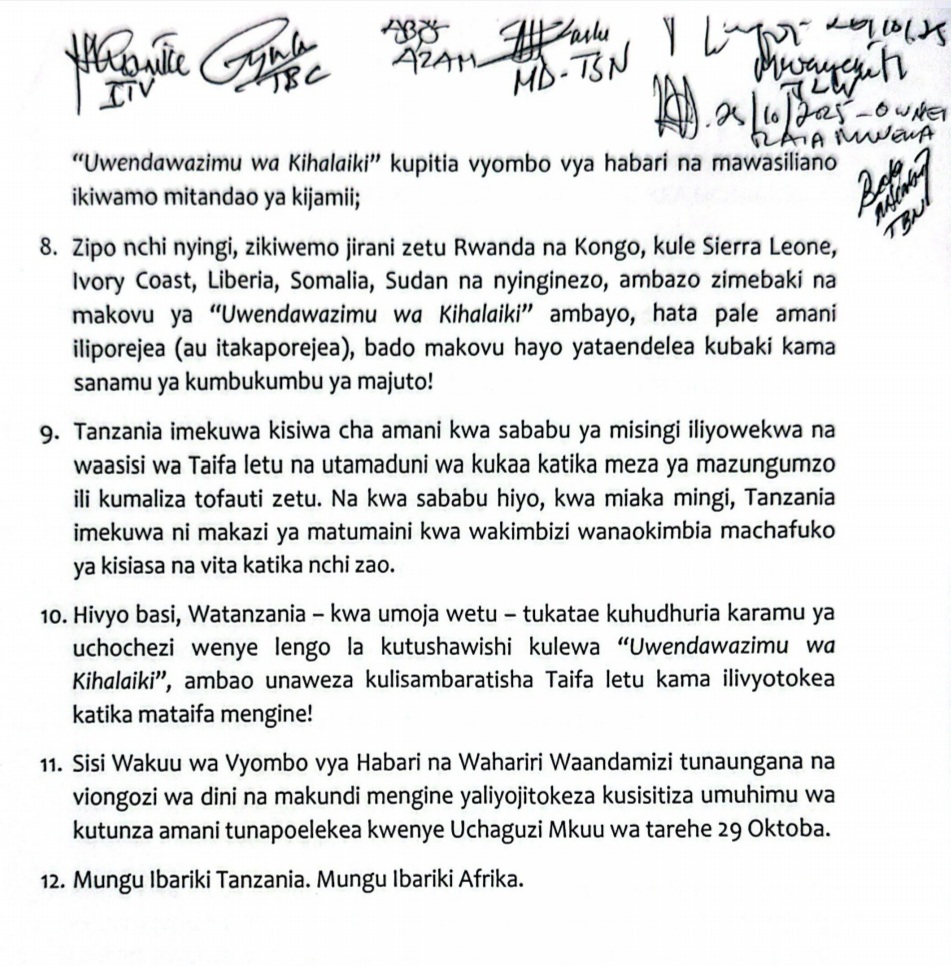 ITV
TBC
AZAM
MD-TSN
25/10/2025 - OWNER
TBN
“Uwendawazimu wa Kihalaiki” kupitia vyombo vya habari na mawasiliano
ikiwamo mitandao ya kijamii;
8. Zipo nchi nyingi, zikiwemo jirani zetu Rwanda na Kongo, kule Sierra Leone,
Ivory Coast, Liberia, Somalia, Sudan na nyinginezo, ambazo zimebaki na
makovu ya “Uwendawazimu wa Kihalaiki” ambayo, hata pale amani
iliporejea (au itakaporejea), bado makovu hayo yataendelea kubaki kama
sanamu ya kumbukumbu ya majuto!
9. Tanzania imekuwa kisiwa cha amani kwa sababu ya misingi iliyowekwa na
waasisi wa Taifa letu na utamaduni wa kukaa katika meza ya mazungumzo
ili kumaliza tofauti zetu. Na kwa sababu hiyo, kwa miaka mingi, Tanzania
imekuwa ni makazi ya matumaini kwa wakimbizi wanaokimbia machafuko
ya kisiasa na vita katika nchi zao.
10. Hivyo basi, Watanzania – kwa umoja wetu – tukatae kuhudhuria karamu ya
uchochezi wenye lengo la kutushawishi kulewa “Uwendawazimu wa
Kihalaiki”, ambao unaweza kulisambaratisha Taifa letu kama ilivyotokea
katika mataifa mengine!
11. Sisi Wakuu wa Vyombo vya Habari na Wahariri Waandamizi tunaungana na
viongozi wa dini na makundi mengine yaliyojitokeza kusisitiza umuhimu wa
kutunza amani tunapoelekea kwenye Uchaguzi Mkuu wa tarehe 29 Oktoba.
12. Mungu Ibariki Tanzania. Mungu Ibariki Afrika.